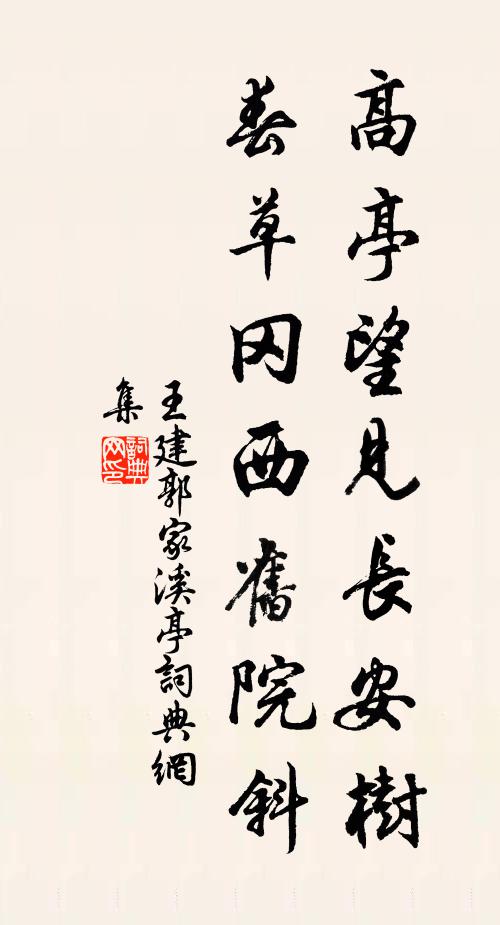 高亭望見長安樹
春草冈西舊院斜
王建郭家溪亭詞典網
集
詞典
网印